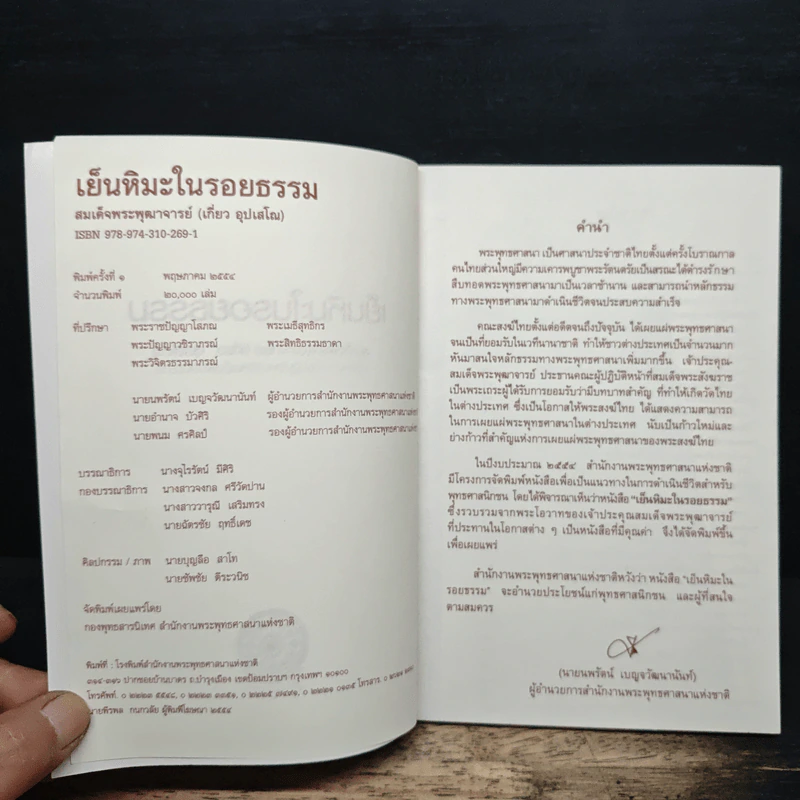 เย็นหิมะในรอยธรรม
สมเด็จพระพุฒาจารย์ (เกี่ยว อุปเสโณ)
ISBN 978-974-310-269-1
พิมพ์ครั้งที่ ๑ พฤษภาคม ๒๕๕๔
จำนวนพิมพ์ ๒๐,๐๐๐ เล่ม
ที่ปรึกษา พระราชปัญญาโสภณ พระเมธีสุทธิกร
พระปัญญาวชิราภรณ์ พระสิทธิธรรมธาดา
พระวิจิตรธรรมาภรณ์
นายนพรัตน์ เบญจวัฒนานันท์ ผู้อำนวยการสำนักงานพระพุทธศาสนาแห่งชาติ
นายอำนาจ บัวศิริ รองผู้อำนวยการสำนักงานพระพุทธศาสนา
นายพนม ศรศิลป์ รองผู้อำนวยการสำนักงานพระพุทธศาสนา
บรรณาธิการ นางจุไรรัตน์ มีศิริ
กองบรรณาธิการ นางสาวจงกล ศรีวัดปาน
นางสาววารุณี เสริมทรง
นายฉัตรชัย ฤทธิ์เดช
ศิลปกรรม / ภาพ นายบุญลือ สาโท
นายชัพชัย ตีระวนิช
จัดพิมพ์เผยแพร่โดย
กองพุทธสารนิเทศ สำนักงานพระพุทธศาสนาแห่งชาติ
พิมพ์ที่ : โรงพิมพ์สำนักงานพระพุทธศาสนาแห่งชาติ
๓๑๔-๓๑๖ ปากซอยบ้านบาตร ถ.บำรุงเมือง เขตป้อมปราบฯ กรุงเทพฯ ๑๐๑๐๐
โทรศัพท์. ๐ ๒๒๒๓ ๕๕๔๘, ๐ ๒๒๒๓ ๓๓๕๑, ๐ ๒๒๒๕ ๗๔๙๑, ๐ ๒๒๒๑ ๐๑๓๕ โทรสาร.
นายพีรพล กนกวลัย ผู้พิมพ์โฆษณา ๒๕๕๔
คำนำ
พระพุทธศาสนา เป็นศาสนาประจำชาติไทยตั้งแต่ครั้งโบราณกาล
คนไทยส่วนใหญ่มีความเคารพบูชาพระรัตนตรัยเป็นสรณะได้ดำรงรักษา
สืบทอดพระพุทธศาสนามาเป็นเวลาช้านาน และสามารถนำหลักธรรม
ทางพระพุทธศาสนามาดำเนินชีวิตจนประสบความสำเร็จ
คณะสงฆ์ไทยตั้งแต่อดีตจนถึงปัจจุบัน ได้เผยแผ่พระพุทธศาสนา
จนเป็นที่ยอมรับในเวทีนานาชาติ ทำให้ชาวต่างประเทศเป็นจำนวนมาก
หันมาสนใจหลักธรรมทางพระพุทธศาสนาเพิ่มมากขึ้น เจ้าประคุณ-
สมเด็จพระพุฒาจารย์ ประธานคณะผู้ปฏิบัติหน้าที่สมเด็จพระสังฆราช
เป็นพระเถระผู้ได้รับการยอมรับว่ามีบทบาทสำคัญ ที่ทำให้เกิดวัดไทย
ในต่างประเทศ ซึ่งเป็นโอกาสให้พระสงฆ์ไทย ได้แสดงความสามารถ
ในการเผยแผ่พระพุทธศาสนาในต่างประเทศ นับเป็นก้าวใหม่และ
ย่างก้าวที่สำคัญแห่งการเผยแผ่พระพุทธศาสนาของพระสงฆ์ไทย
ในปีงบประมาณ ๒๕๕๔ สำนักงานพระพุทธศาสนาแห่งชาติ
มีโครงการจัดพิมพ์หนังสือเพื่อเป็นแนวทางในการดำเนินชีวิตสำหรับ
พุทธศาสนิกชน โดยได้พิจารณาเห็นว่าหนังสือ “เย็นหิมะในรอยธรรม”
ซึ่งรวบรวมจากพระโอวาทของเจ้าประคุณสมเด็จพระพุฒาจารย์
ที่ประทานในโอกาสต่าง ๆ เป็นหนังสือที่มีคุณค่า จึงได้จัดพิมพ์ขึ้น
เพื่อเผยแผ่
สำนักงานพระพุทธศาสนาแห่งชาติหวังว่า หนังสือ “เย็นหิมะใน
รอยธรรม” จะอำนวยประโยชน์แก่พุทธศาสนิกชน และผู้ที่สนใจ
ตามสมควร
(นายนพรัตน์ เบญจวัฒนานันท์)
ผู้อำนวยการสำนักงานพระพุทธศาสนาแห่งชาติ